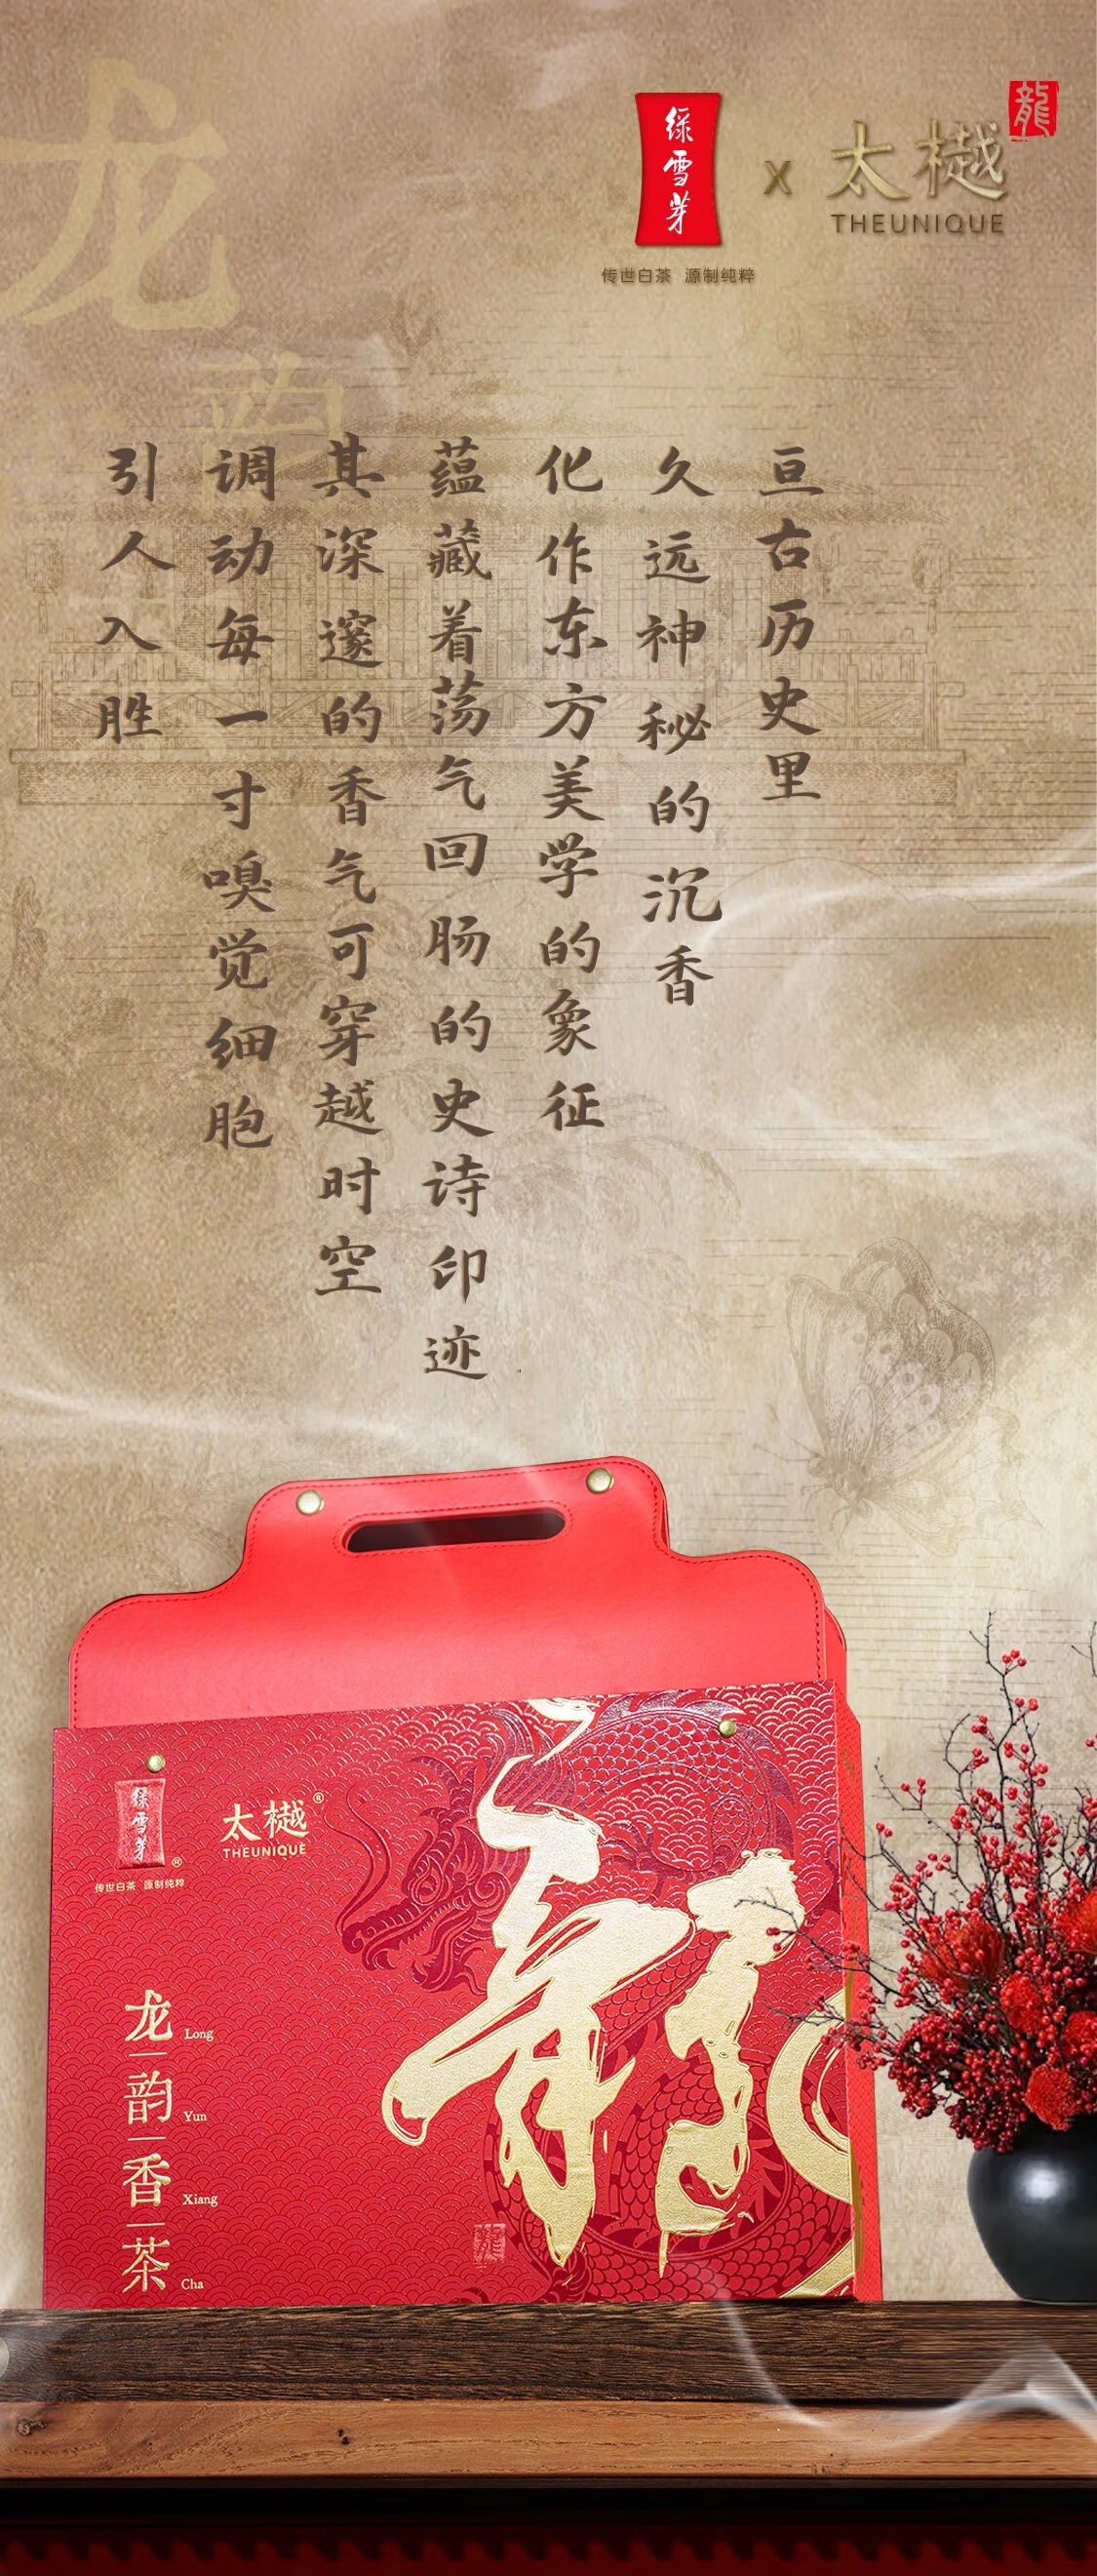 绿雪芽
传世白茶 源制纯粹
X
太樾
THEUNIQUE
龍
龙
韵
亘古历史里
久远神秘的沉香
化作东方美学的象征
蕴藏着荡气回肠的史诗印迹
其深邃的香气可穿越时空
调动每一寸嗅觉细胞
引人入胜
绿雪芽®
传世白茶 源制纯粹
太樾®
THEUNIQUE
龍
龙 Long
韵 Yun
香 Xiang
茶 Cha
龍